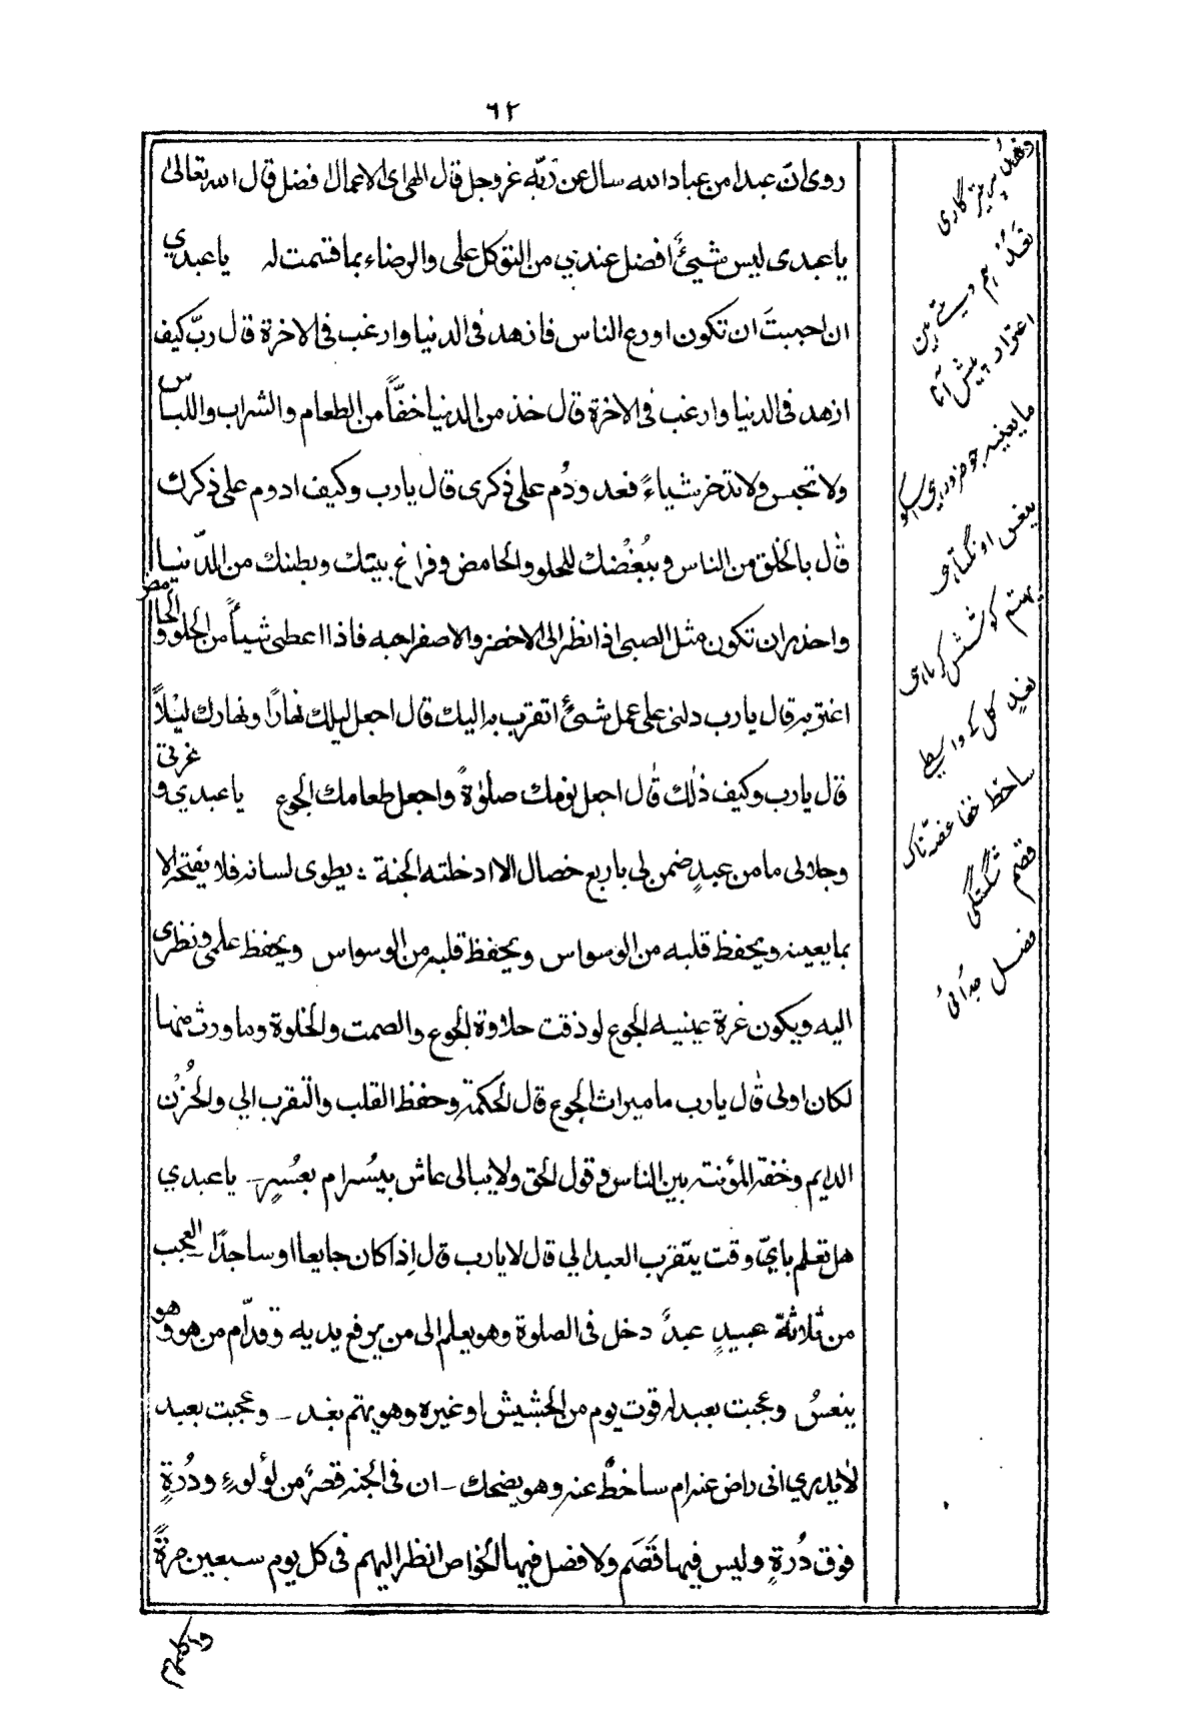 ٦٢
روى ان عبدا من عباد الله سال عن ربّه عز وجل قال الهى اى الاعمال افضل قال الله تعالى
يا عبدى ليس شيئٌ افضل عندي من التوكل على والرضاء بما قسمت له يا عبدي
ان احببتَ ان تكون اورع الناس فازهد فى الدنيا وارغب فى الاخرة قال ربّ كيف
ازهد فى الدنيا وارغب فى الاخرة قال خذ من الدنيا خفّاً من الطعام والشراب واللباس
ولا تحبس ولا تدخر شياءً فعد ودُم على ذكرى قال يارب وكيف ادوم على ذكرك
قال بالخلق من الناس وببُغضك للحلو والحامض وفراغ بيتك وبطنك من الدّنيا
واحذر ان تكون مثل الصبى اذ انظر الى الاخضر والاصفر احبه فاذا اعطى شيأً من الحلو والحامض
اغتر به قال يارب دلنى على عمل شئٍ اتقرب به اليك قال اجعل ليلك نهارًا ونهارك ليْلاً
قال يارب وكيف ذلك قال اجعل نومك صلوٰةً واجعل طعامك الجوع يا عبدي وعزتى
وجلالى ما من عبدٍ ضمن لى باربع خصال الا ادخلته الجنة : يطوى لسانه فلا يفتحه الا
بما يعينه ويحفظ قلبه من الوسواس ويحفظ قلبه من الوسواس ويحفظ علمى ونظرى
اليه ويكون غرة عينيه الجوع لو ذقت حلاوة الجوع والصمت والخلوة وما ورث منها
لكان اولى قال يارب ما ميراث الجوع قال الحكمة وحفظ القلب والتقرب الي والحُزْن
الدايم وخفة المؤنته بين الناس وقول الحق ولا يبالى عاش بيُسرام بعُسرٍ ـ يا عبدي
هل تعلم بايّ وقت يتقرب العبد الي قال لا يارب قال اِذا كان جايعا او ساجدًا العجب
من ثلاثة عبيدٍ عبدٌ دخل فى الصلوة وهو يعلم الى من يرفع يديه وقدّام من هو وهو
ينعسُ وعجبت بعبد له قوت يوم من الحشيش او غيره وهو يهتم بغد ـ وعجبت بعبد
لا يدري انى راض عنه ام ساخطٌ عنه وهو يضحك ـ ان فى الجنه قصرٌ من لؤلوءٍ ودُرةٍ
فوق دُرةٍ وليس فيها قَصَم ولا فصل فيها الخواص انظر اليهم فى كل يوم سبعين مرةً
وهدٌ پرہیز گاری
ما يعينه جو ضرور
ينعس اونگتا ہی
يهتم كوشش كرتا ہی
بغدٍ كل كے واسطے
ساخط خفا غضبناک
قصم شكستگی
فصل جدائی